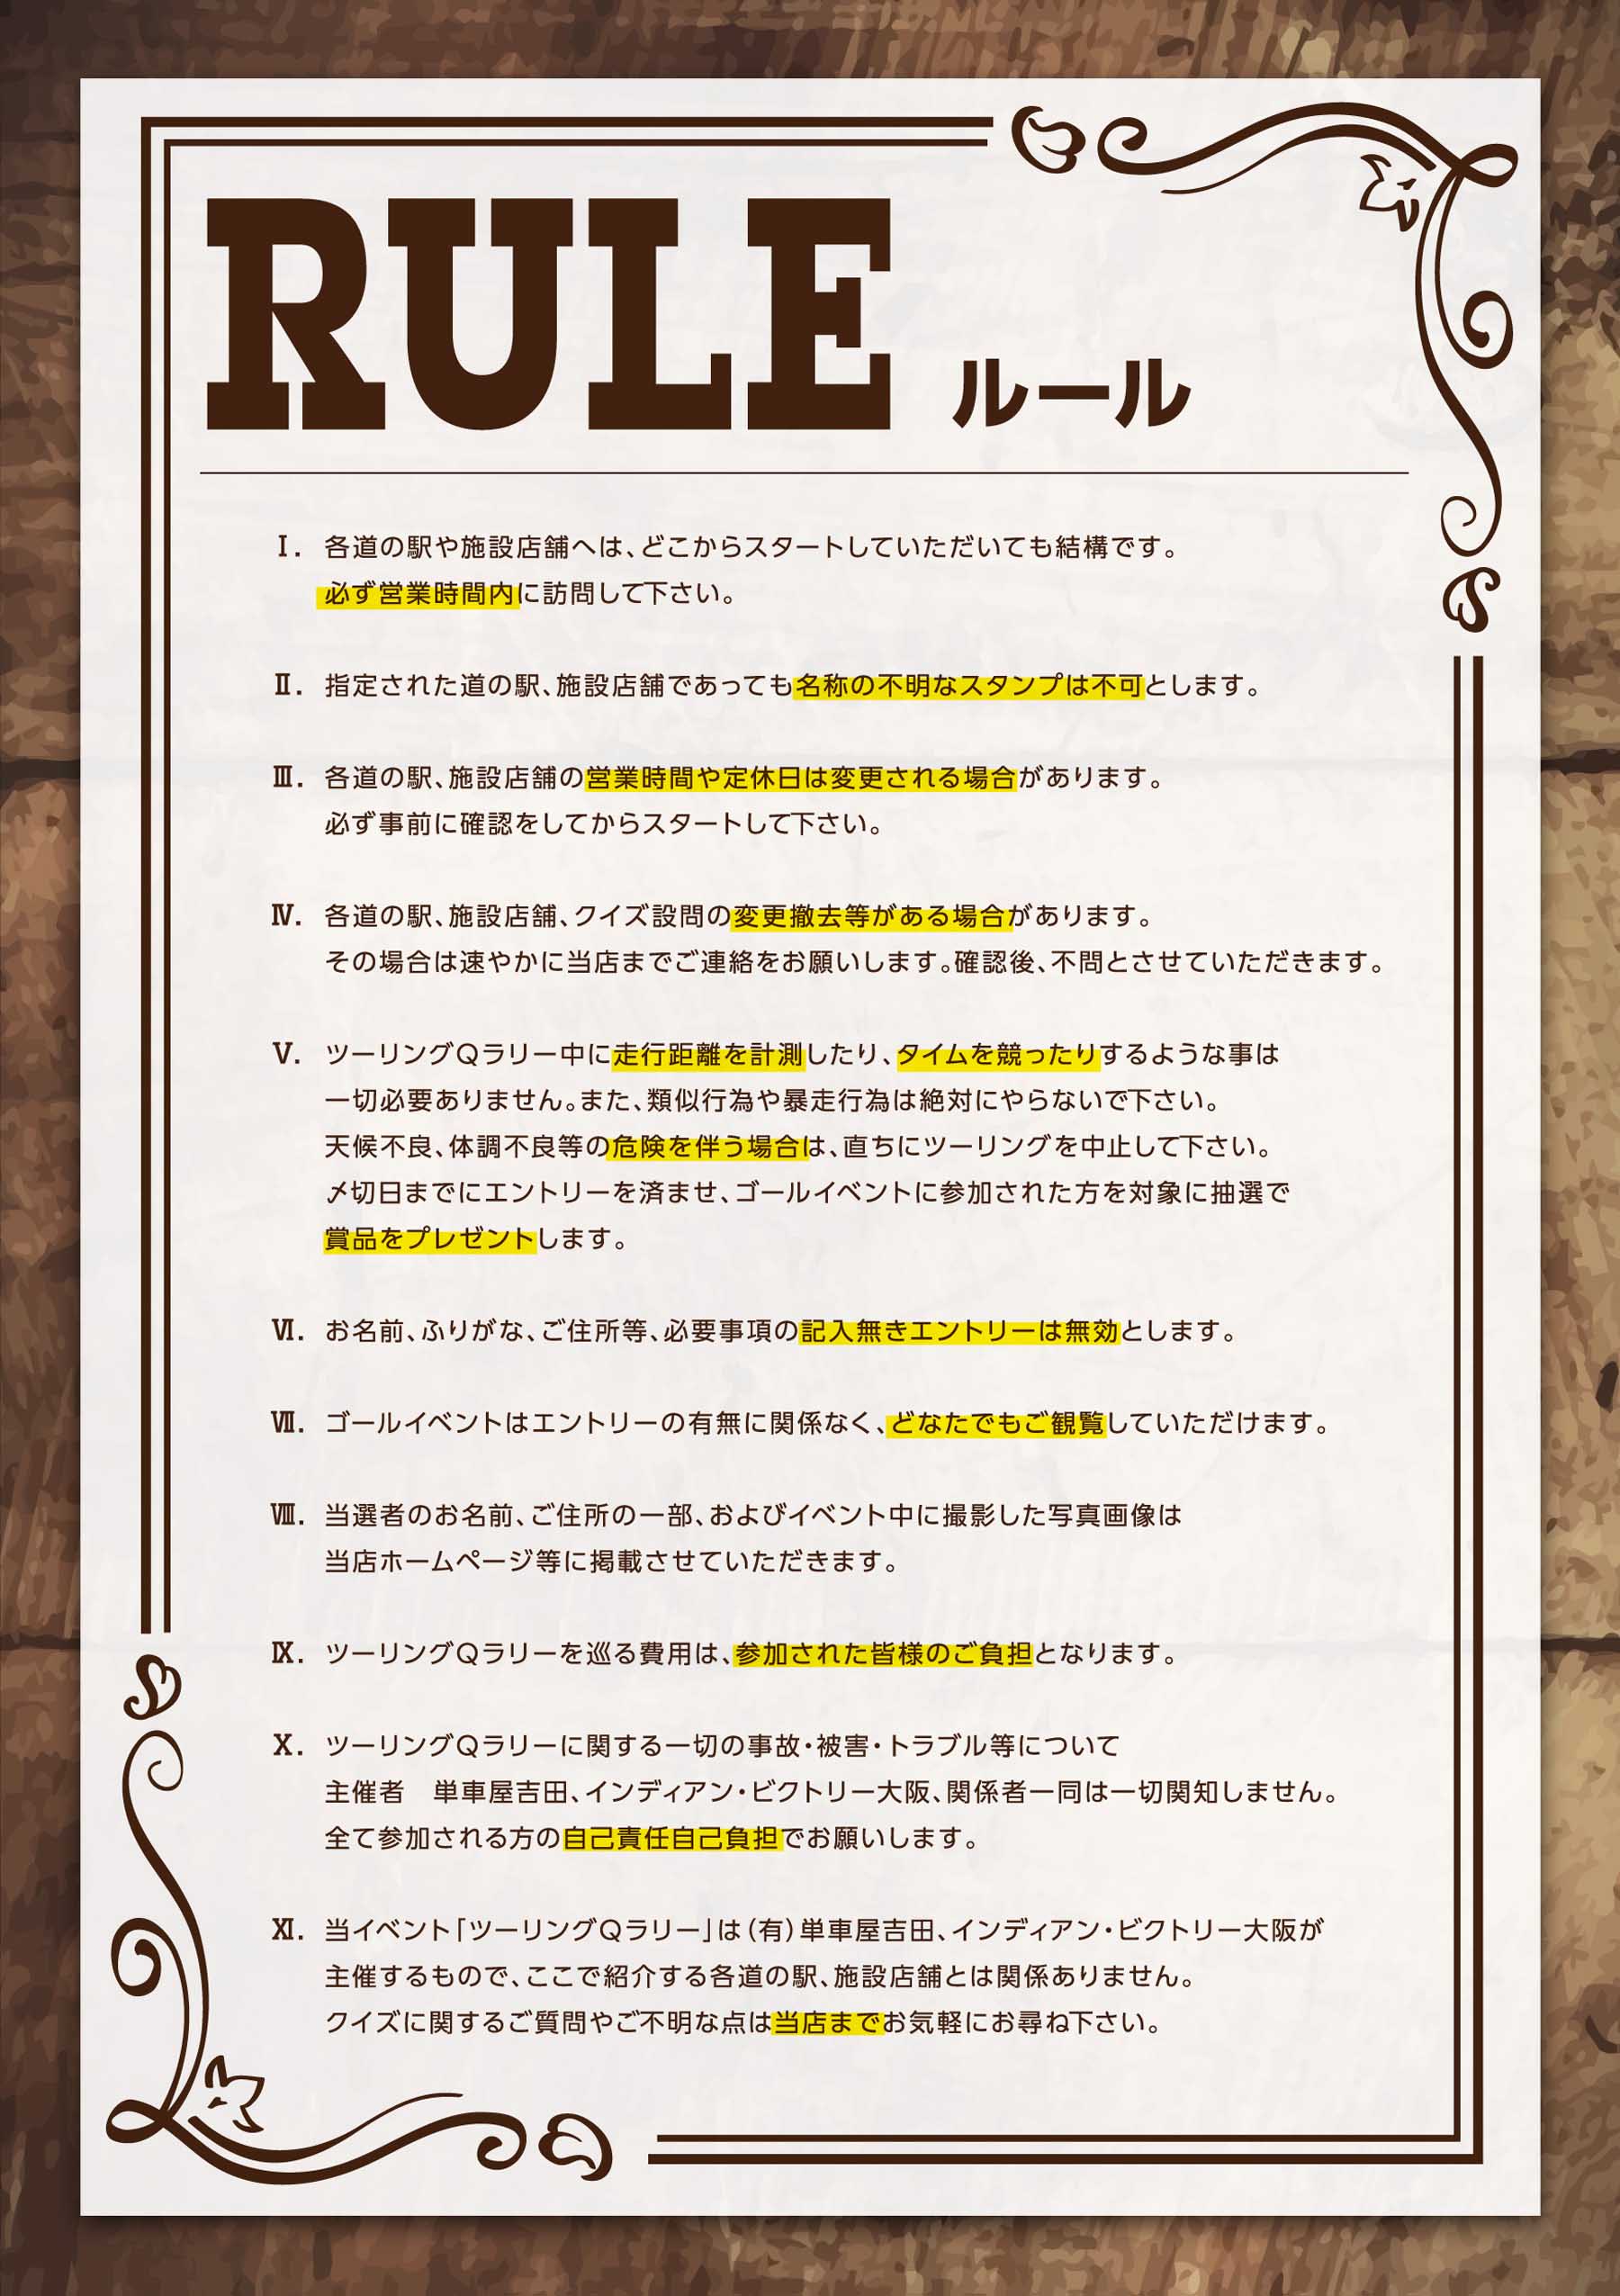 RULE ルール
Ⅰ. 各道の駅や施設店舗へは、どこからスタートしていただいても結構です。
必ず営業時間内に訪問して下さい。
Ⅱ. 指定された道の駅、施設店舗であっても名称の不明なスタンプは不可とします。
Ⅲ. 各道の駅、施設店舗の営業時間や定休日は変更される場合があります。
必ず事前に確認をしてからスタートして下さい。
Ⅳ. 各道の駅、施設店舗、クイズ設問の変更撤去等がある場合があります。
その場合は速やかに当店までご連絡をお願いします。確認後、不問とさせていただきます。
Ⅴ. ツーリングQラリー中に走行距離を計測したり、タイムを競ったりするような事は
一切必要ありません。また、類似行為や暴走行為は絶対にやらないで下さい。
天候不良、体調不良等の危険を伴う場合は、直ちにツーリングを中止して下さい。
〆切日までにエントリーを済ませ、ゴールイベントに参加された方を対象に抽選で
賞品をプレゼントします。
Ⅵ. お名前、ふりがな、ご住所等、必要事項の記入無きエントリーは無効とします。
Ⅶ. ゴールイベントはエントリーの有無に関係なく、どなたでもご観覧していただけます。
Ⅷ. 当選者のお名前、ご住所の一部、およびイベント中に撮影した写真画像は
当店ホームページ等に掲載させていただきます。
Ⅸ. ツーリングQラリーを巡る費用は、参加された皆様のご負担となります。
Ⅹ. ツーリングQラリーに関する一切の事故・被害・トラブル等について
主催者　単車屋吉田、インディアン・ビクトリー大阪、関係者一同は一切関知しません。
全て参加される方の自己責任自己負担でお願いします。
Ⅺ. 当イベント「ツーリングQラリー」は(有)単車屋吉田、インディアン・ビクトリー大阪が
主催するもので、ここで紹介する各道の駅、施設店舗とは関係ありません。
クイズに関するご質問やご不明な点は当店までお気軽にお尋ね下さい。